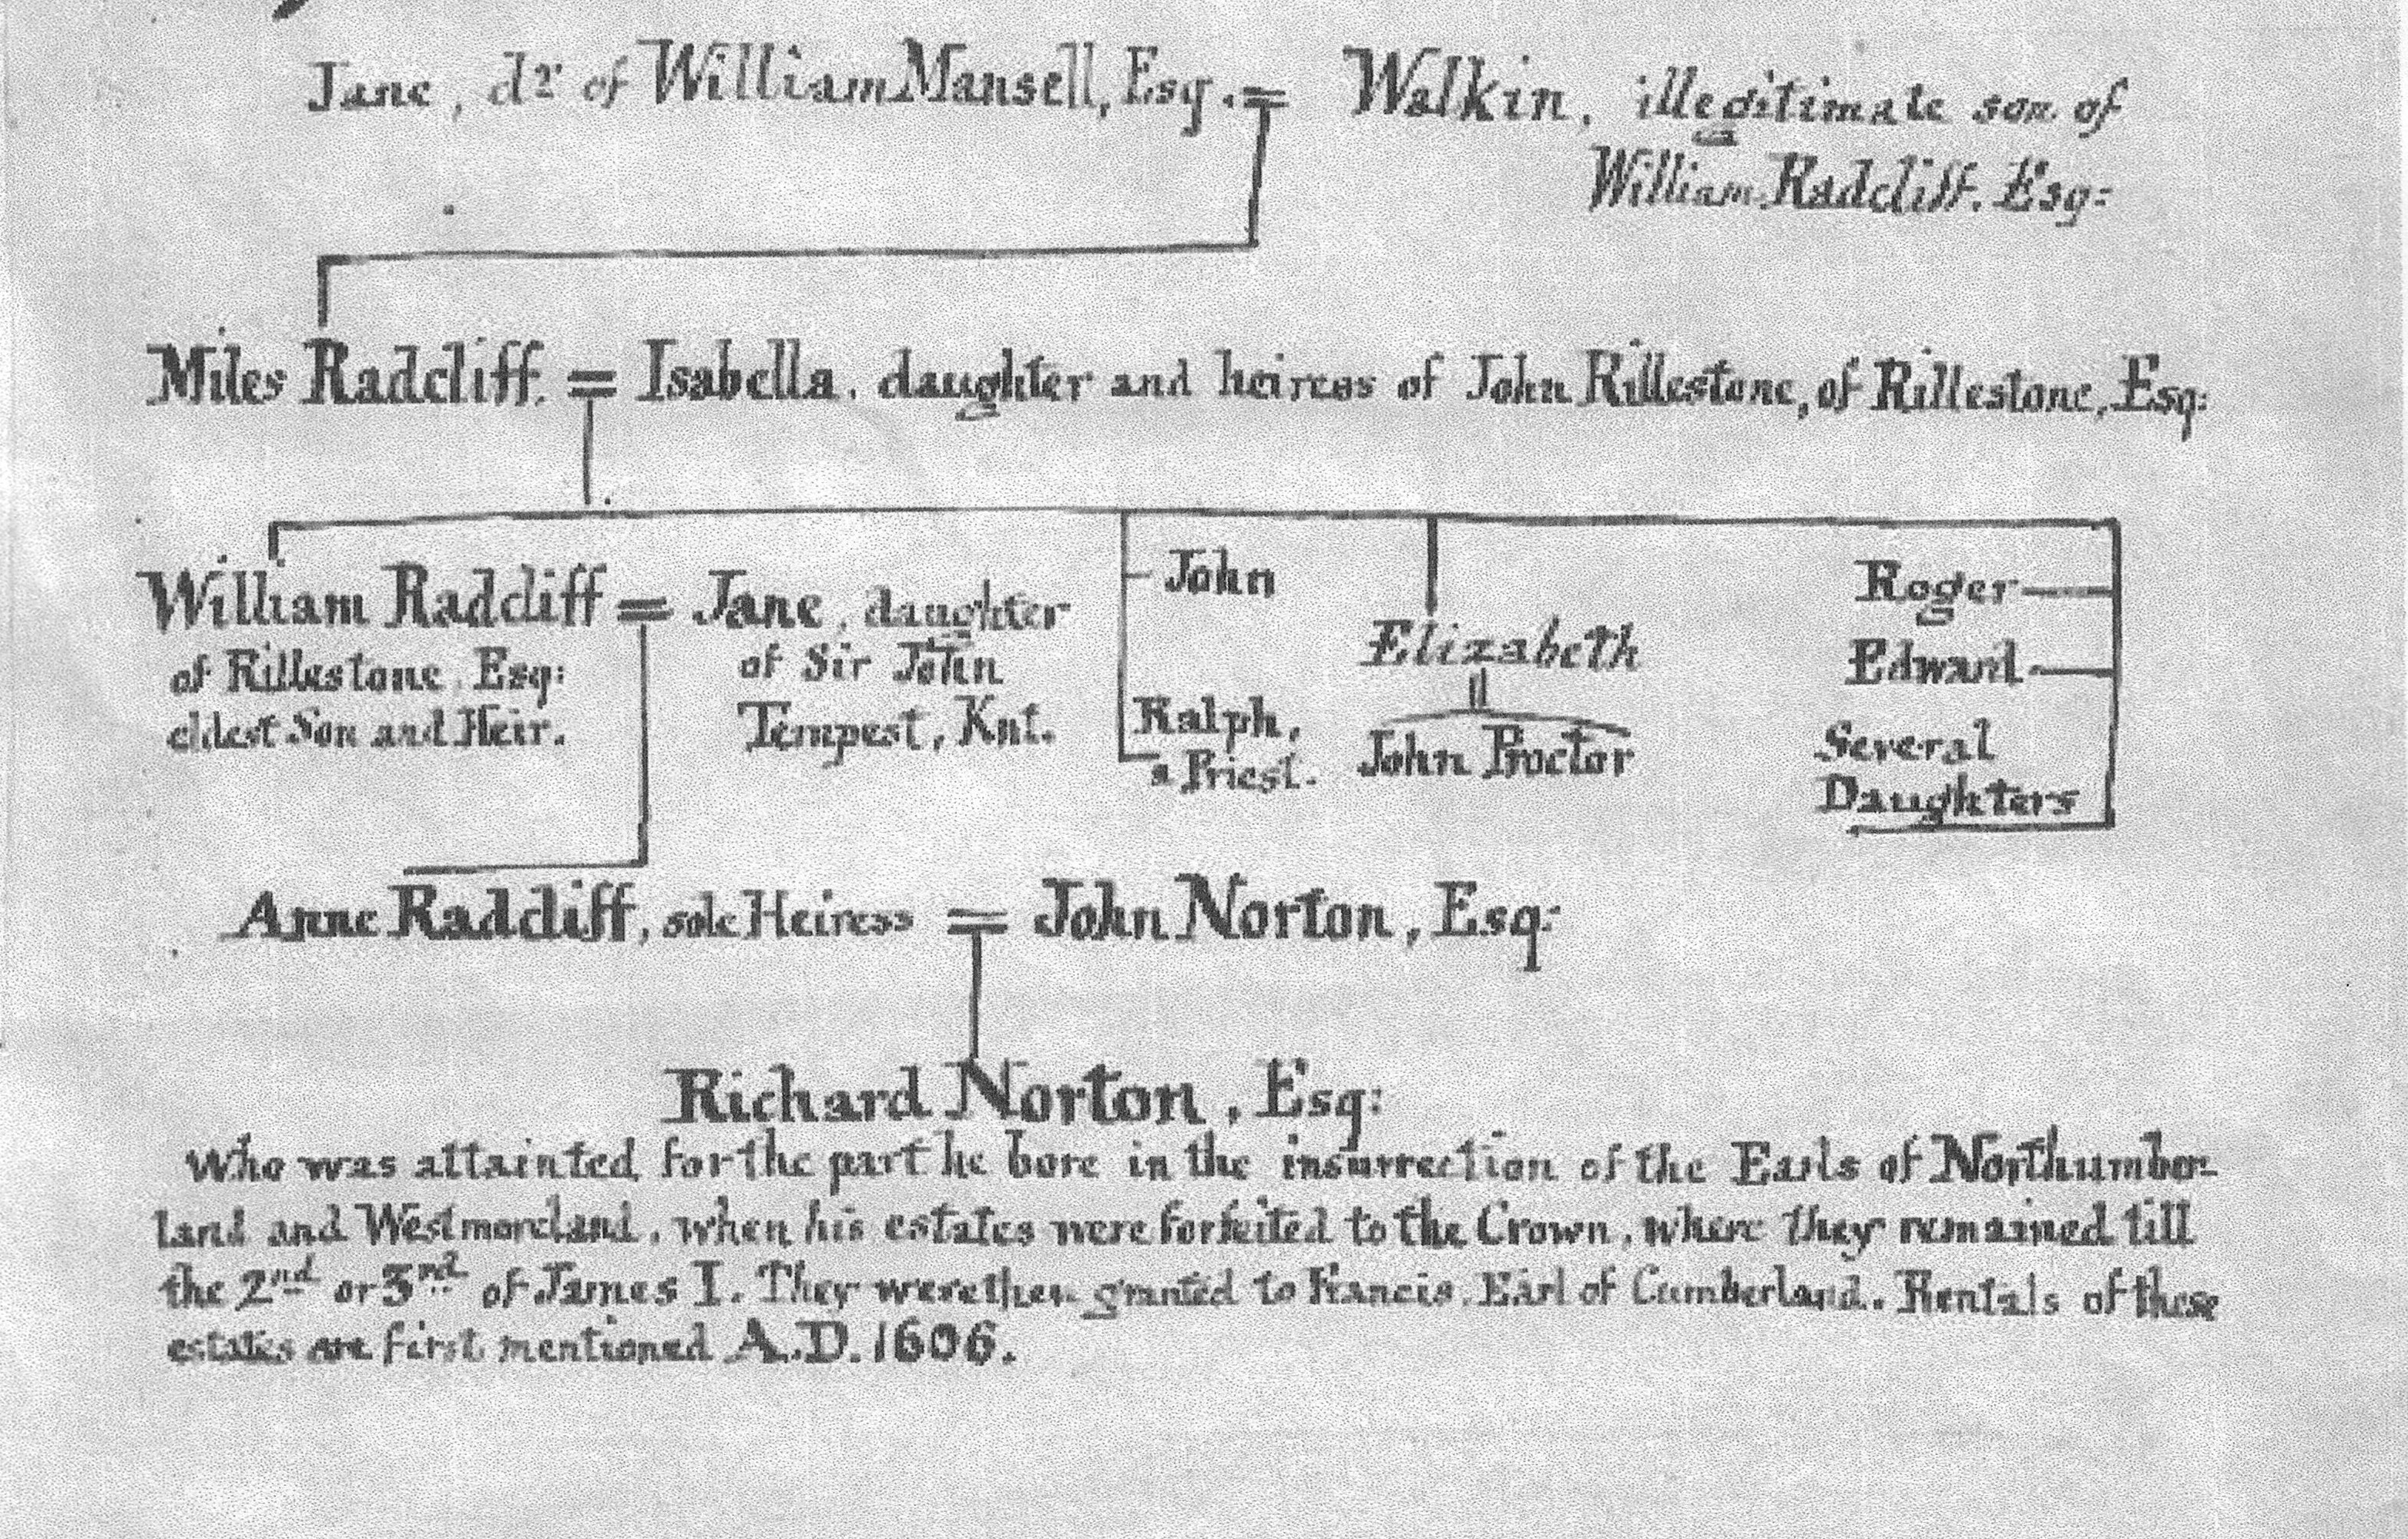 Jane, dr of William Mansell, Esq. = Walkin, illegitimate son of
William Radcliff. Esq:
Miles Radcliff. = Isabella, daughter and heiress of John Rillestone, of Rillestone, Esq:
William Radcliff = Jane, daughter
of Rillestone Esq:
eldest Son and Heir.
of Sir John
Tempest, Knt.
John
Ralph,
a Priest.
Elizabeth
John Proctor
Roger
Edward
Several
Daughters
Anne Radcliff, sole Heiress = John Norton, Esq:
Richard Norton, Esq:
who was attainted for the part he bore in the insurrection of the Earls of Northumber-
land and Westmoreland, when his estates were forfeited to the Crown, where they remained till
the 2nd or 3rd of James I. They were then granted to Francis, Earl of Cumberland. Rentals of these
estates are first mentioned A.D. 1606.